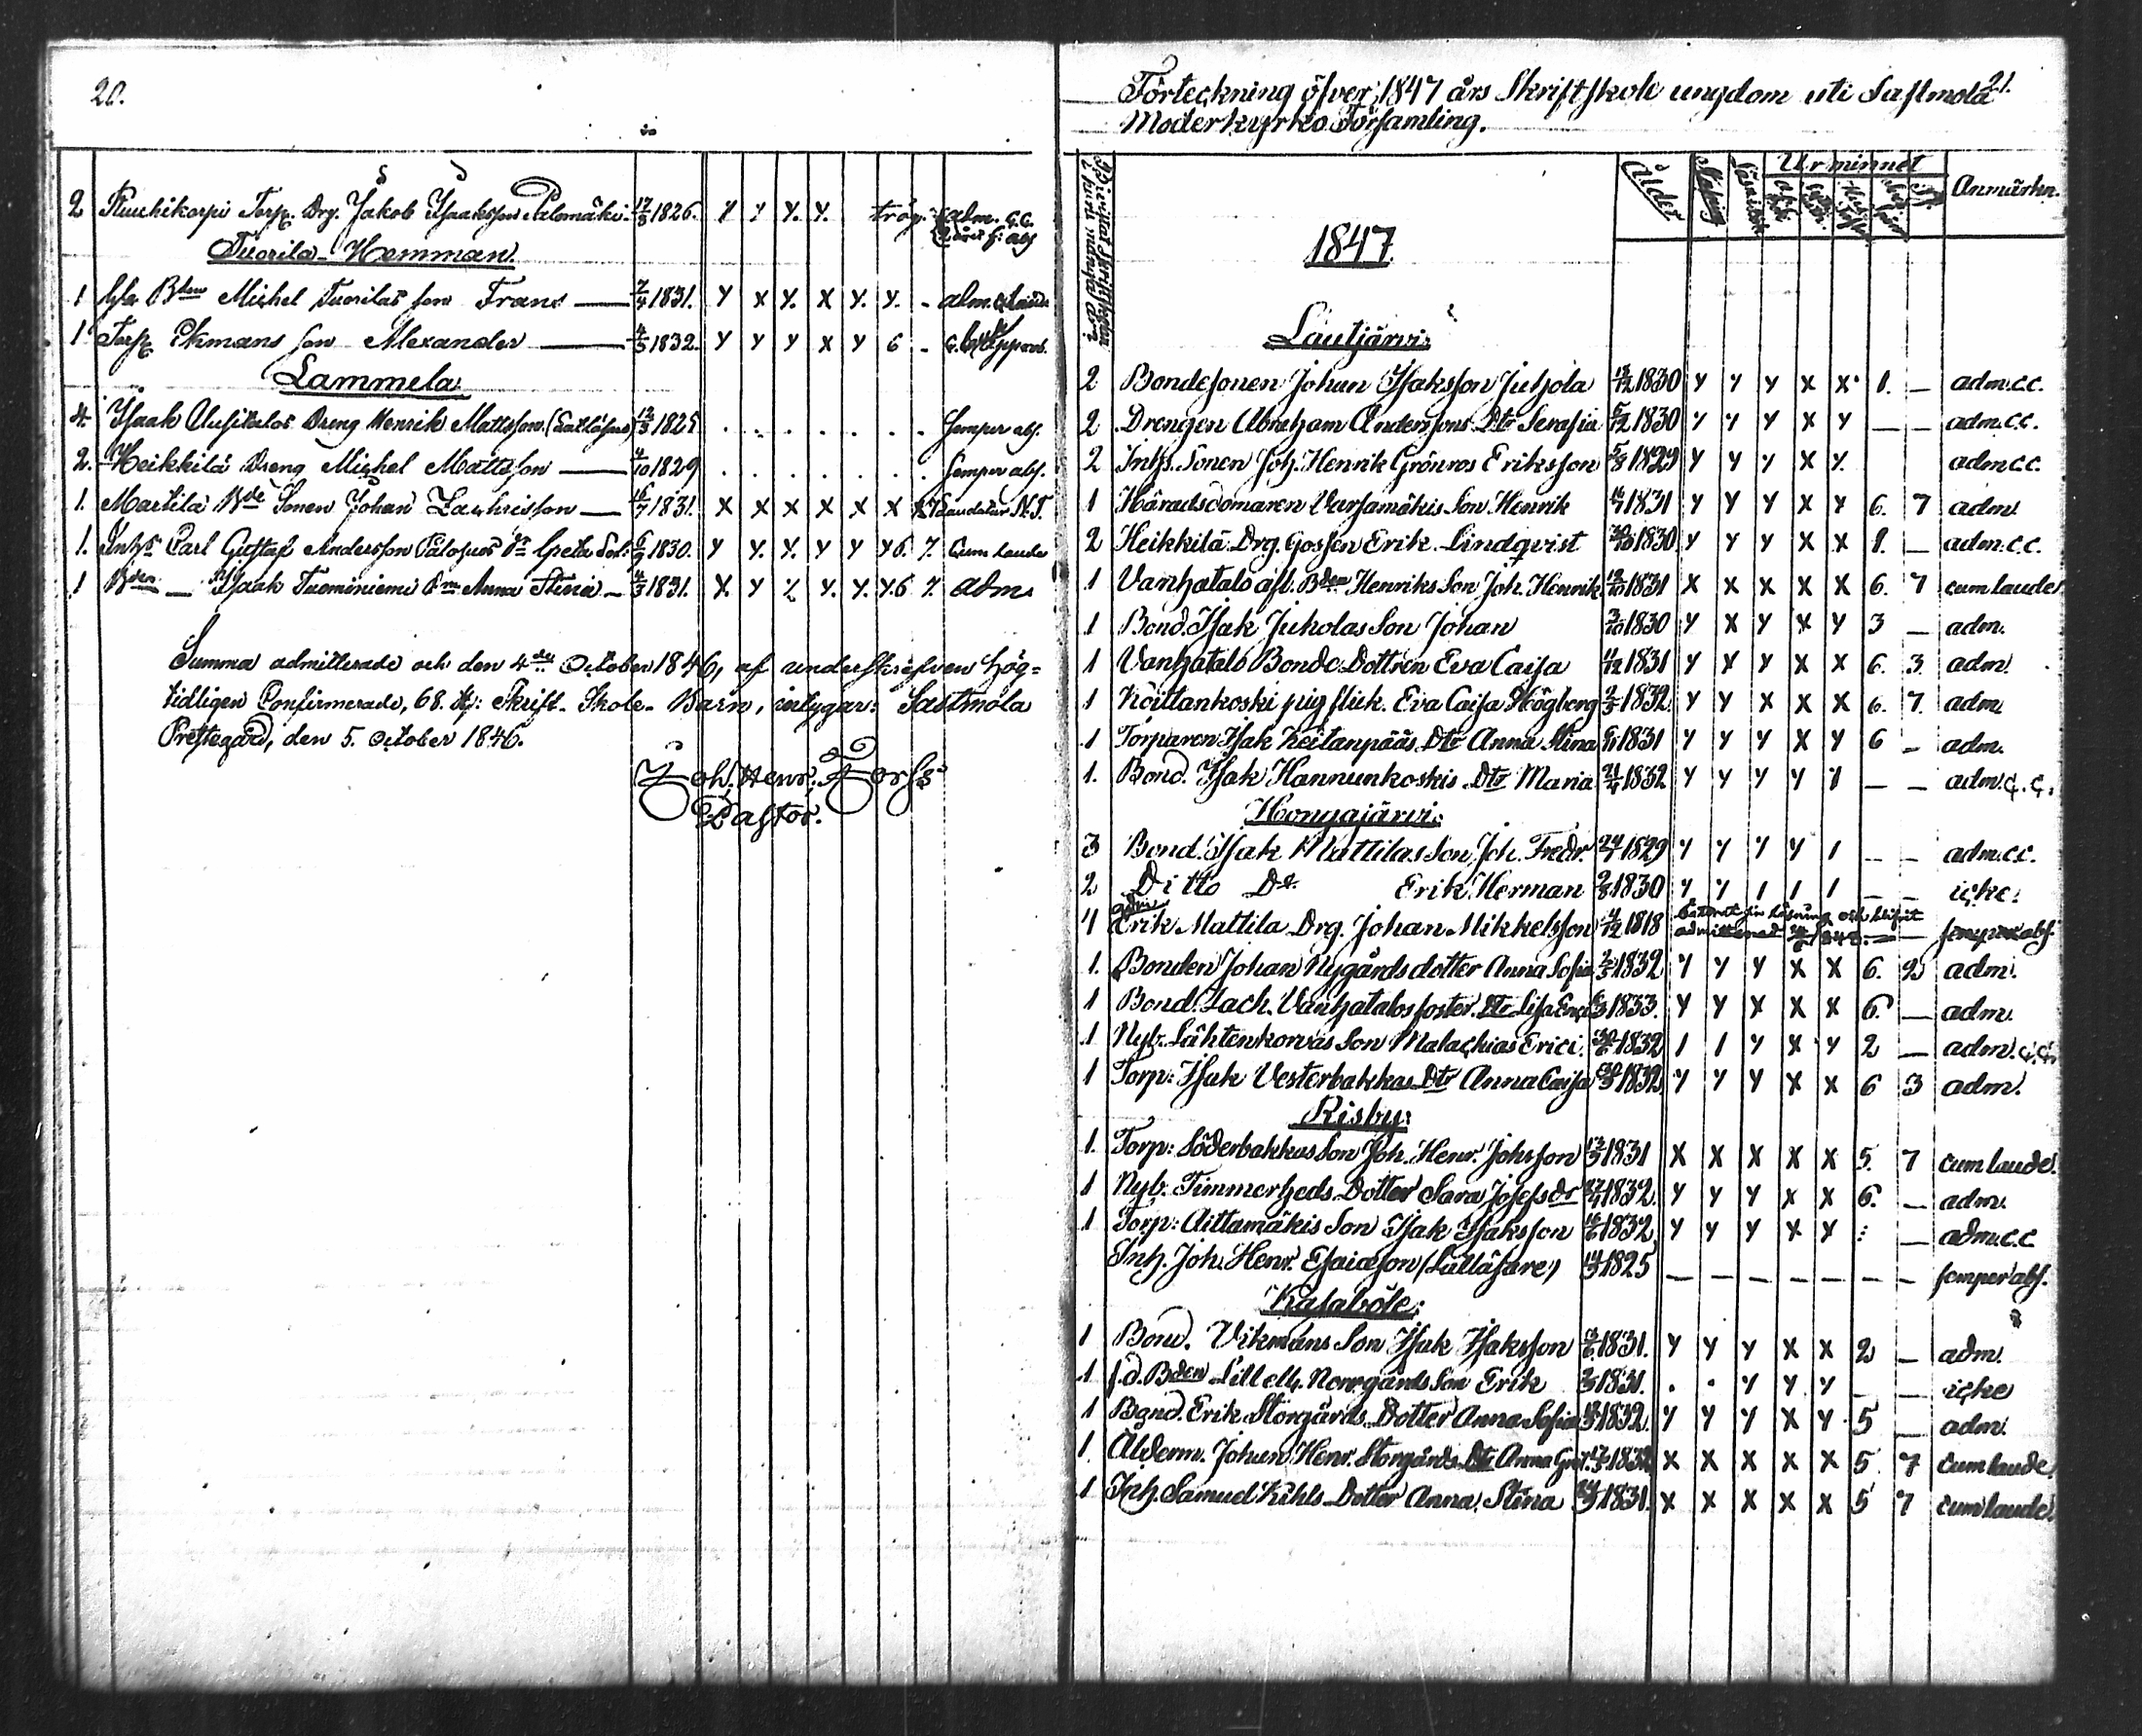 20.
2 Ruuhikorpi Torp. Drg. Jakob Isaaksson Palomäki. 17/3 1826. y y y. y. trög. adm. c.c.
Tuorila Hemman.
1 Bden Michel Tuorilas son Frans — 7/4 1831. y x y. x y. y. - adm.
1 Torp. Ekmans son Alexander — 4/5 1832. y y y x y 6 -
Lammela
4. Isaak Uusitalos Dreng Henrik Mattsson (Lattläsare) 12/3 1825 . . . . . . . semper abs.
2. Heikkilä Dreng Michel Mattsson — 4/10 1829 . . . . . . . semper abs.
1. Martila Bde Sonen Johan Zachrisson — 16/7 1831. x x x x x x 7 Laudatur N.T.
1. Inhs Carl Gustaf Andersson dr Greta 6/9 1830. y y. y. y y y6 7. Cum laude
1 Bden — Isaak Tuominiemi Dr Anna Stina — 4/3 1831. x. y y. y. y. y.6 7. adm
Summa admitterade och den 4de October 1846, af underskrefven hög-
tidligen Confirmerade, 68. st: Skrift-Skole-Barn, intygar: Sastmola
Prestegård, den 5. October 1846.
Joh. Henr. Forss
Pastor.
Förteckning öfver 1847 års Skriftskole ungdom uti Sastmola 21.
Moderkyrko Församling.
Ålder
Ur minnet
Anmärkn.
1847.
Lautjärvi:
2 Bondesonen Johan Isaksson Juhola 13/12 1830 y y y x x 1. — adm.c.c.
2 Drengen Abraham Anderssons Dtr Serafia 5/12 1830 y y y x y — — adm.c.c.
2 Inhs. Sonen Joh. Henrik Grönros Eriksson 5/8 1829 y y y x y. adm.c.c.
1 Häradsdomaren Varsamäkis Son Henrik 16/7 1831 y y y x y 6. 7 adm
2 Heikkilä Drg. Gossen Erik Lindqvist 1830 y y y x x 1. — adm.c.c.
1 Vanhatalo afl. Bden Henriks Son Joh. Henrik 12/10 1831 x x x x x 6. 7 cum laude
1 Bond. Isak Juholas Son Johan 3/10 1830 y x y x y 3 — adm.
1 Vanhatalo Bonde Dottren Eva Caisa 11/12 1831 y x y x x 6. 3 adm.
1 Koittankoski pig flick. Eva Caisa Högberg 2/3 1832 y y x x x 6. 7. adm
1 Torparen Isak Keitanpääs Dtr Anna Stina 6/11 1831 y y y x y 6 — adm.
1. Bond. Isak Hannunkoskis Dtr Maria 21/4 1832 y y y y 1 — — adm. c.c.
Hongajärvi:
3 Bond. Isak Mattilas Son Joh. Fredr. 24/7 1829 y y y y 1 — — adm.c.c.
2 Ditto Do Erik Herman 2/8 1830 y y 1 1 1 — — icke:
4 Erik Mattila Drg. Johan Mikkelsson 4/12 1818 semper abs.
1. Bonden Johan Nygårds dotter Anna Sofia 2/5 1832 y y y x x 6. 2 adm.
1 Bond. Zach. Vanhatalos foster. Dtr Lisa 1833. y y x x x 6. — adm.
1 Nyb. Lähtenkorvas Son Malachias Erici. 1832 1 1 y x y 2 — adm. c.c.
1 Torp: Isak Vesterbakkas Dtr Anna Caisa 1832 y y y x x 6 3 adm.
Risby:
1. Torp: Söderbakkas Son Joh. Henr. Johsson 13/3 1831 x x x x x 5. 7 cum laude.
1 Nyb. Timmerheds Dotter Sara Josefs dr 1832. y y y x x 6. — adm.
1 Torp: Aittamäkis Son Isak Isaksson 16/6 1832 y y y x x : — adm.c.c
Inh. Joh. Henr. Esaiasson (Lattläsare) 14/3 1825 — — — — — — — semper abs.
Kasaböle:
1 Bond. Vikmans Son Isak Isaksson 1831. y y y x x 2 — adm.
1 f.d. Bden Lill ell. Norrgårds Son Erik 1831. . . y y y — — icke
1 Bond. Erik Storgårds Dotter Anna Sofia 1832. y y y x y. 5 — adm.
1. Ålderm. Johan Henr. Storgårds Dtr Anna Gret. 1832 x x x x x 5. 7 cum laude
1 Inh. Samuel Kihls Dotter Anna Stina 1831. x x x x x 5 7 cum laude.